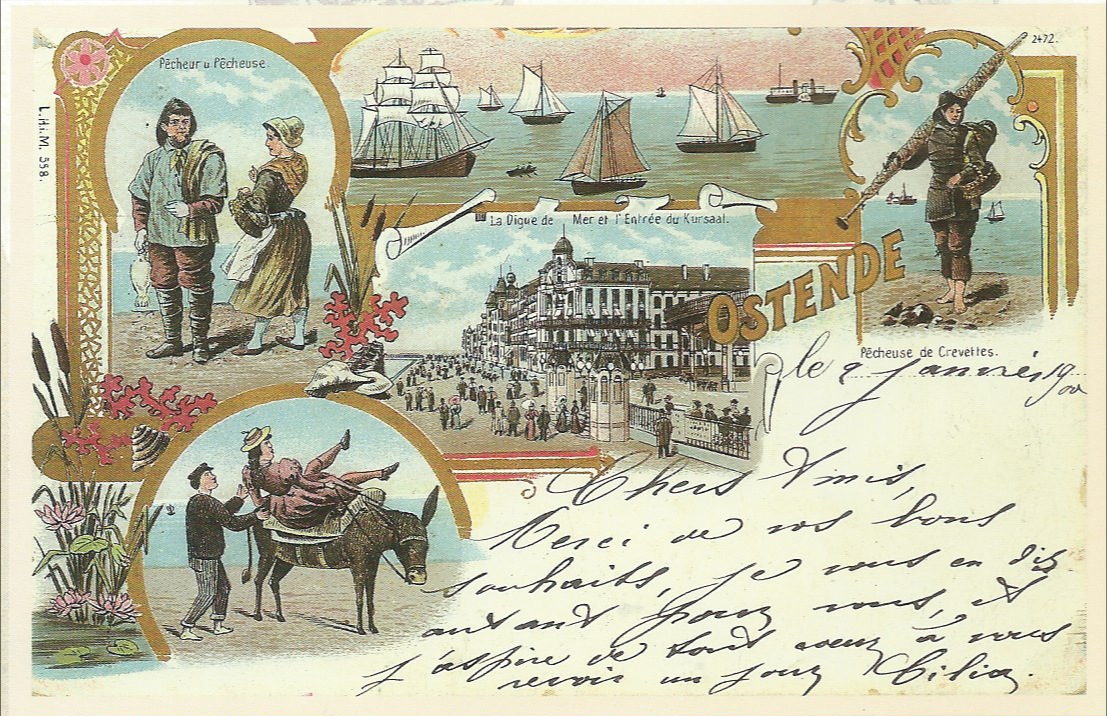 Pêcheur u Pêcheuse.
2472.
L.H.i.M. 558.
La Digue de Mer et l'Entrée du Kursaal.
OSTENDE
Pêcheuse de Crevettes.
le 2 Janvier 1900
Chers Amis,
Merci de vos bons
souhaits, je vous en dis
autant pour vous, et
j'aspire de tout coeur à vous
revoir un jour